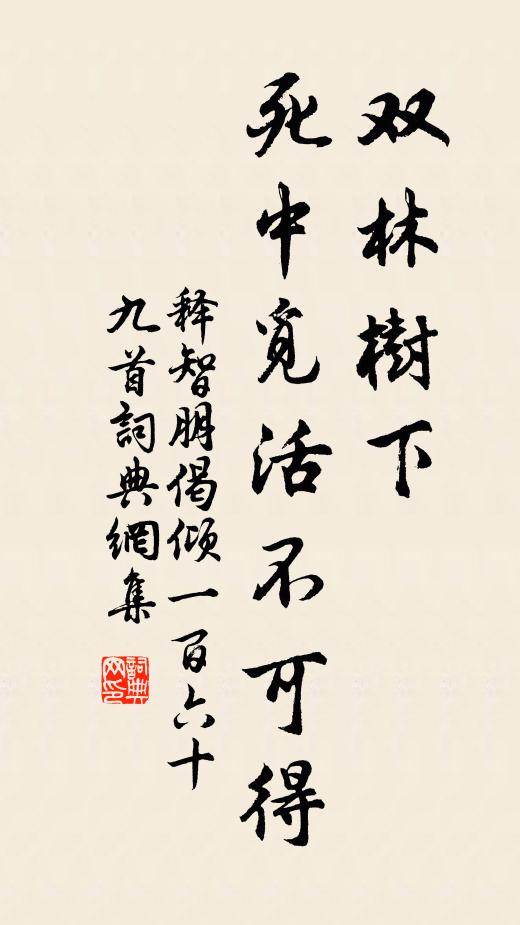 双林樹下
死中覓活不可得
释智朋偈倾一百六十
九首詞典網集
詞典
网印